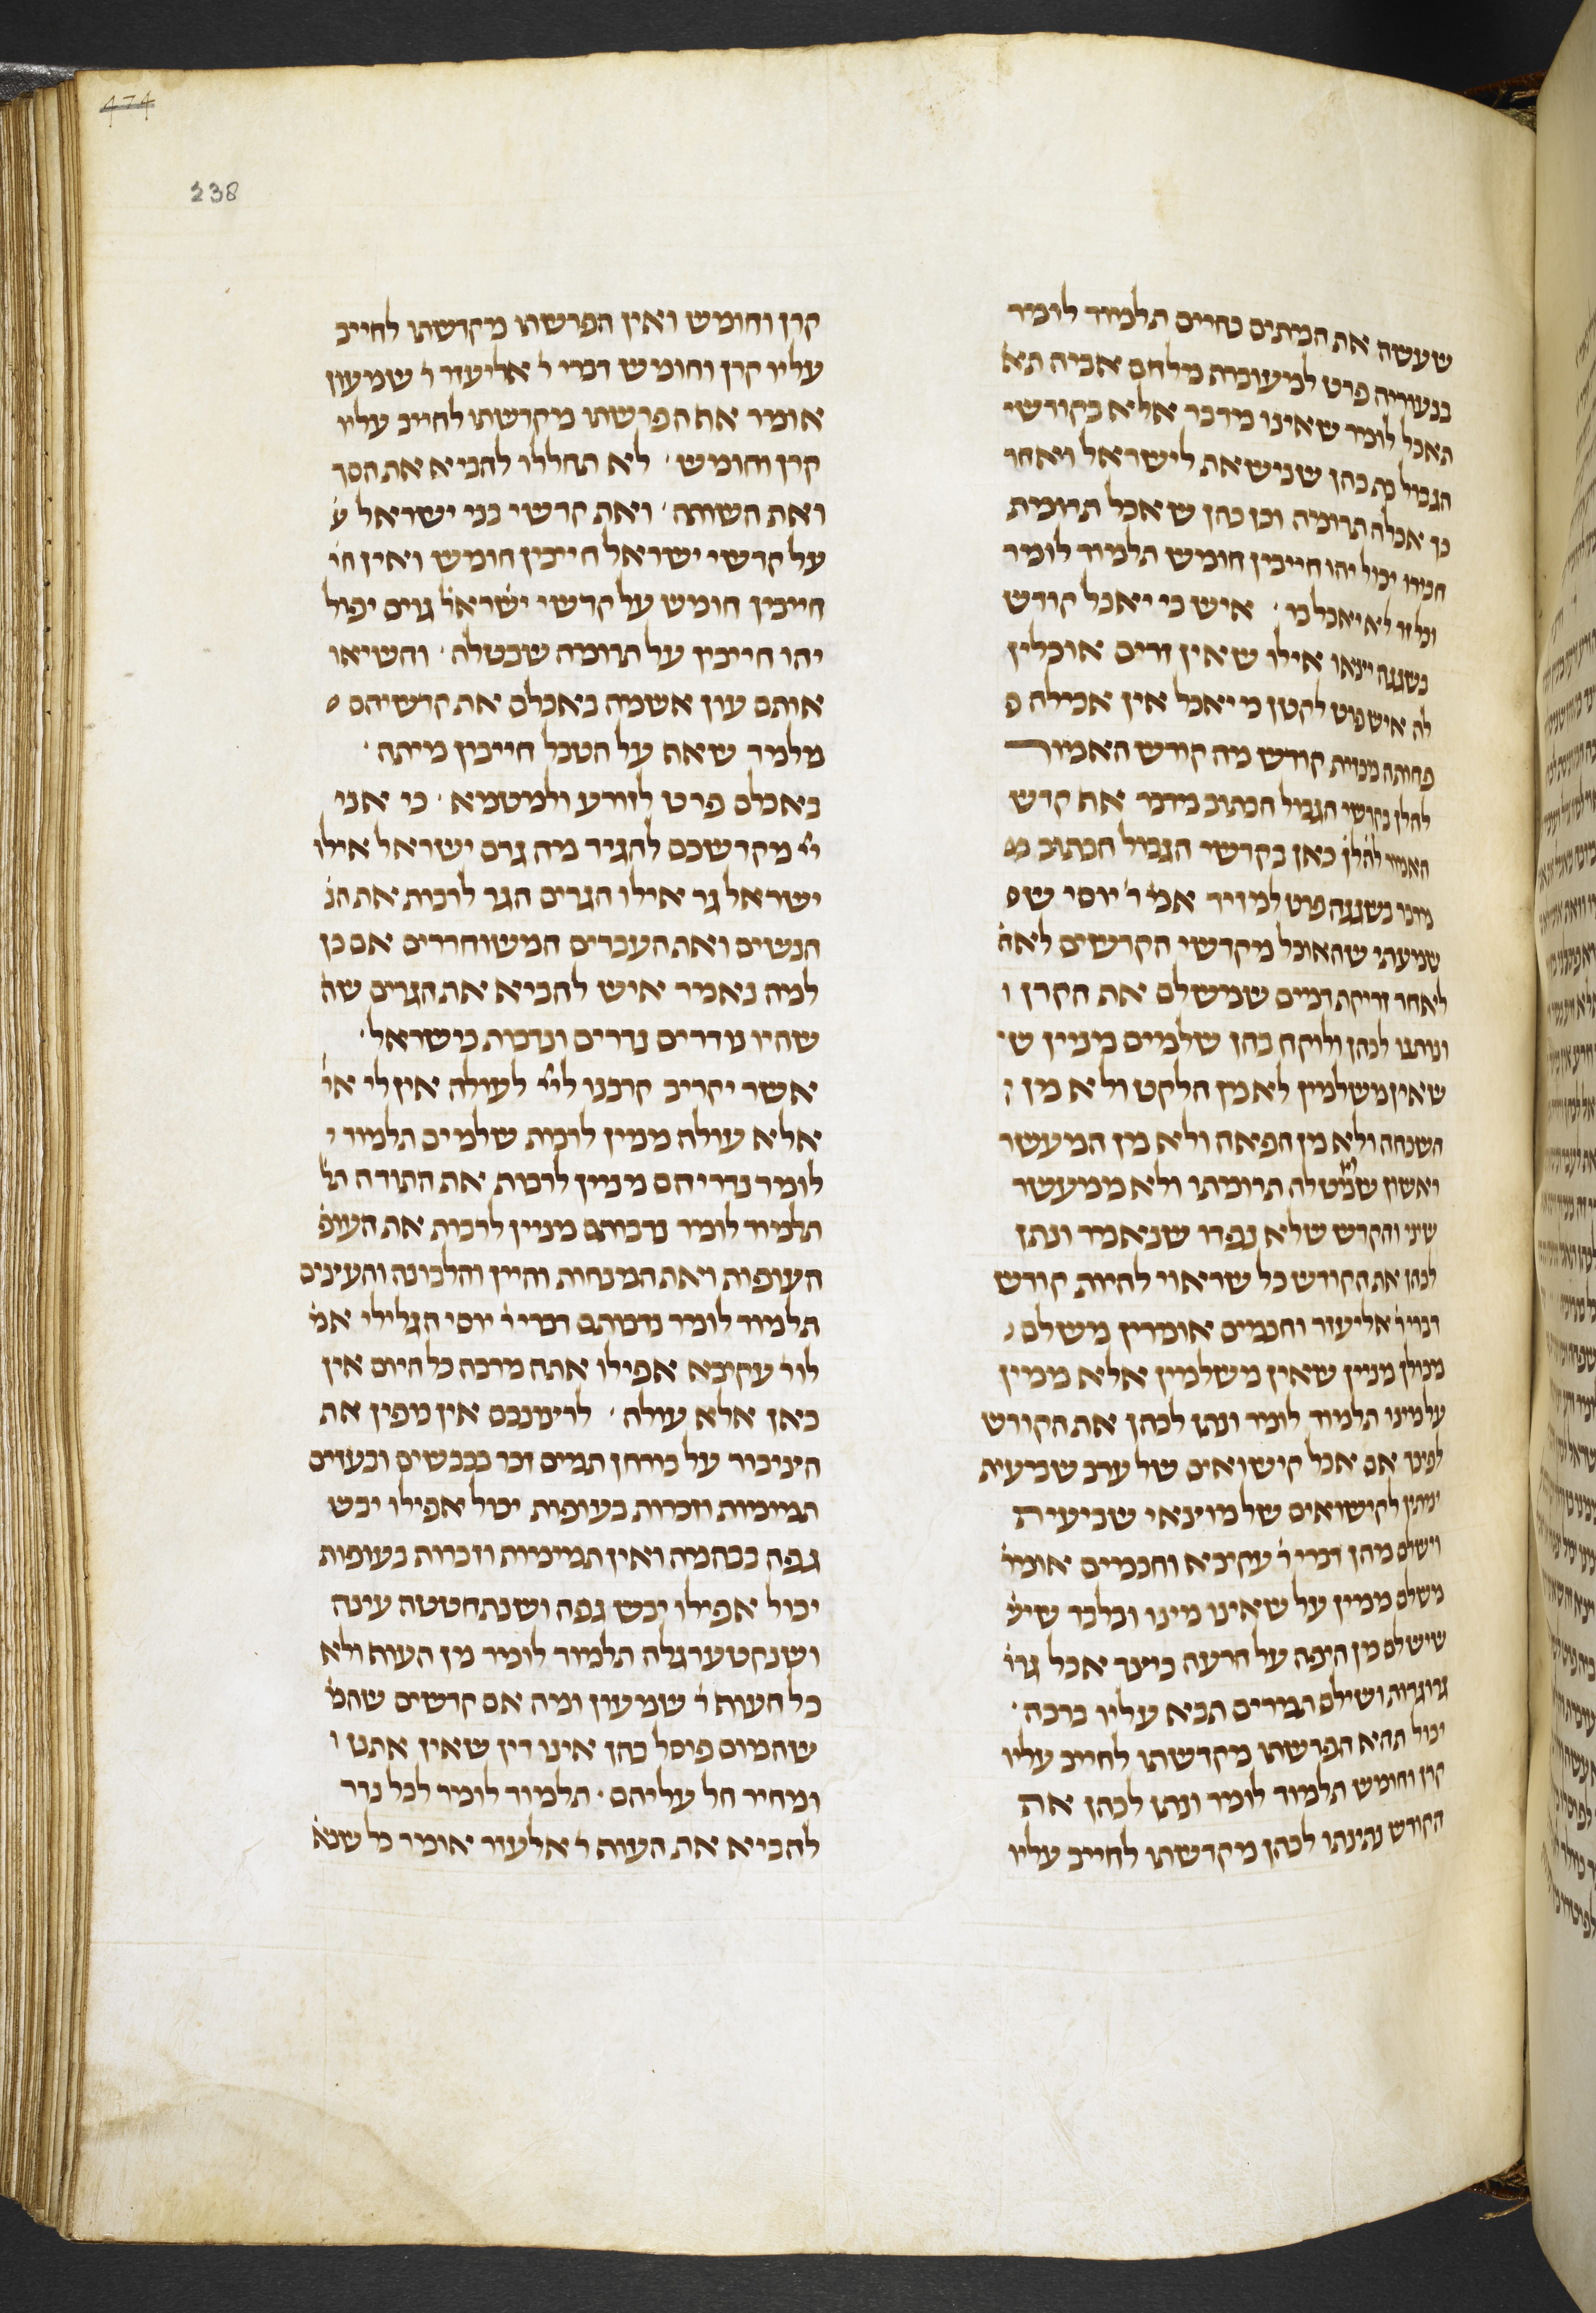 474
238
שעשה את המתים כחיים תלמוד לומר
בנעוריה פרט למעוברת מלחם אביה תא
תאכל לומר שאינו מדבר אלא בקודשי
הגבול בת כהן שנישאת לישראל ואחר
כך אכלה תרומה וכן כהן שאכל תרומת
חבירו יכול יהו חייבין חומש תלמוד לומר
וכל זר לא יאכל בו ׳ איש כי יאכל קודש
בשגגה ייצאו אילו שאין זרים אוכלין
לה איש פרט לקטן כי יאכל אין אכילה פ
פחותה מכזית קודש מה קודש האמור
להלן בקדשי הגבול הכתוב מדבר את קדש
האמור להלן כאן בקדשי הגבול הכתוב מ
מדבר בשגגה פרט למזיד אמ׳ ר׳ יוסי ש
שמעתי שהאוכל מקדשי הקדשים לאח
לאחר זריקת דמים שמשלם את הקרן ו
ונותנו לכהן ולוקח בהן שלמים מניין ש
שאין משלמין לא מן הלקט ולא מן ה
השכחה ולא מן הפאה ולא מן המעשר
ראשון שניטלה תרומתו ולא ממעשר
שיני והקדש שלא נפדו שנאמר ונתן
לכהן את הקודש כל שראוי להיות קודש
דברי ר׳ אליעזר וחכמים אומרין משלם
מכולן מניין שאין משלמין אלא ממין
על מינו תלמוד לומר ונתן לכהן את הקודש
לפיכך אם אכל קישואים של ערב שביעית
ימתין לקישואים של מוצאי שביעית
וישלם מהן דברי ר׳ עקיבא וחכמים אומר׳
משלם ממין על שאינו מינו ובלבד שיש
שישלם מן היפה על הרעה כיצד אכל גרו
גרוגרות ושילם תמרים תבא עליו ברכה ׳
יכול תהא הפרשתו מקדשתו לחייב עליו
קרן וחומש תלמוד לומר ונתן לכהן את
הקודש נתינתו לכהן מקדשתו לחייב עליו
קרן וחומש ואין הפרשתו מקדשתו לחייב
עליו קרן וחומש דברי ר׳ אליעזר ר׳ שמעון
אומר את הפרשתו מקדשתו לחייב עליו
קרן וחומש ׳ לא תחללו להביא את הסך
ואת השותה ׳ ואת קדשי בני ישראל ע
על קדשי ישראל חייבין חומש ואין חי
חייבין חומש על קדשי ישראל גוים יכול
יהו חייבין על תרומה שבטלה ׳ והשיאו
אותם עון אשמה באכלם את קדשיהם
מלמד שאת על הטבל חייבין מיתה ׳
באכלם פרט לזורע ולמטמא ׳ כי אני
יי׳ מקדשכם להגיד מה גרם ישראל אילו
ישראל גר אילו הגרים הגר לרבות את הנ
הנשים ואת העבדים המשוחררים אם כן
למה נאמר איש להביא את הגרים שה
שהיו נודרים נדרים ונדבות כישראל ׳
אשר יקריב קרבנו ליי׳ לעולה אין לי א
אלא עולה ממין לרבות שלמים תלמוד ל
לומר נדריהם מניין לרבות את התודה תל
תלמוד לומר נדבותם מניין לרבות את העופ
העופות ואת המנחות והיין והלבונה והעיצים
תלמוד לומר נדבותם דברי ר׳ יוסי הגלילי אמ׳
לו ר׳ עקיבא אפילו אתה מרבה כל היום אין
כאן אלא עולה ׳ לרצונכם אין מפין את
הציבור על כורחן תמים זכר בכבשים ובעזים
תמימות וזכרות בעופות יכול אפילו יבש
גפה בבהמה ואין תמימות וזכרות בעופות
יכול אפילו יבש גפה ושנתחטטה עינה
ושנקטע רגלה תלמוד לומר מן העוף ולא
כל העוף ר׳ שמעון ומה אם קדשים שהמ
שהמום פוסל בהן אינו דין שאין אתנן ו
ומחיר חל עליהם ׳ תלמוד לומר לכל נדר
להביא את העוף ר׳ אלעזר אומר כל שנא